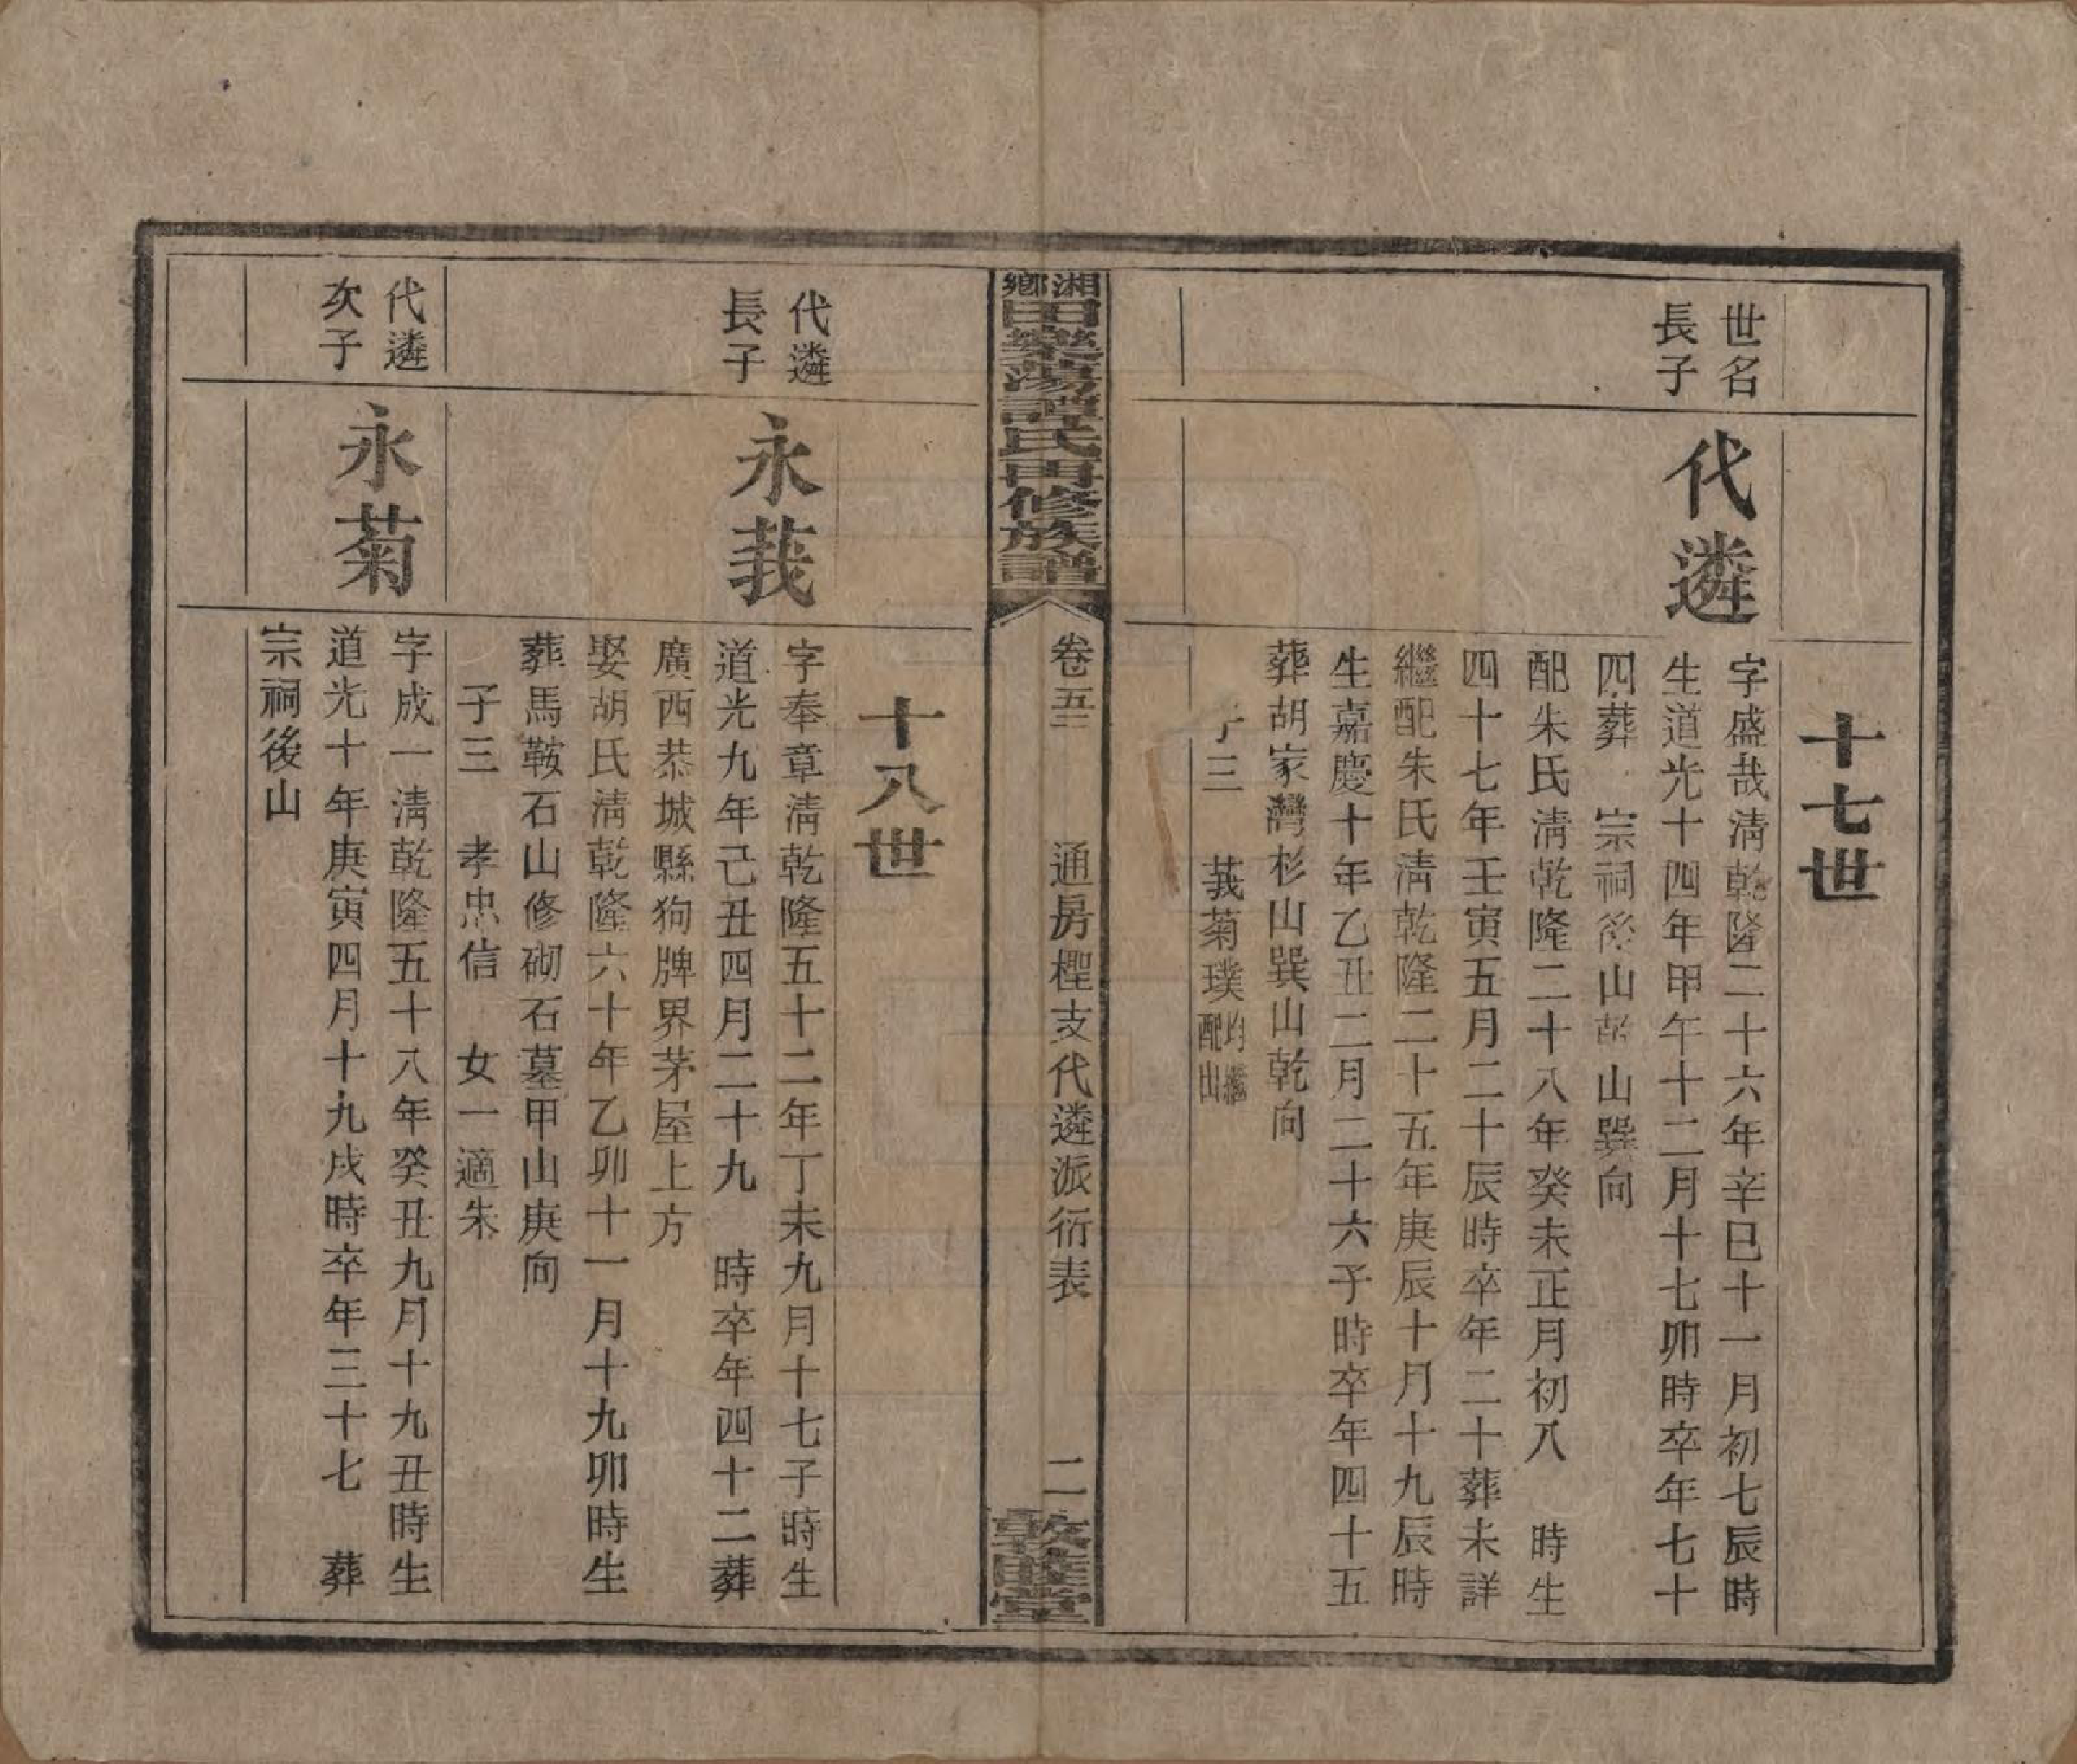 十七世
世名
長子
代遴
字盛哉淸乾隆二十六年辛巳十一月初七辰時
生道光十四年甲午十二月十七卯時卒年七十
四葬 宗祠後山乾山巽向
配朱氏淸乾隆二十八年癸未正月初八 時生
四十七年壬寅五月二十辰時卒年二十葬未詳
繼配朱氏淸乾隆二十五年庚辰十月十九辰時
生嘉慶十年乙丑二月二十六子時卒年四十五
葬胡家灣杉山巽山乾向
子三 莪菊璞均繼配出
湘鄉田樂蕩譚氏四修族譜
卷五二 通房檉支代遴派衍表 二
敦睦堂
十八世
代遴
長子
永莪
字奉章淸乾隆五十二年丁未九月十七子時生
道光九年己丑四月二十九 時卒年四十二葬
廣西恭城縣狗牌界茅屋上方
娶胡氏淸乾隆六十年乙卯十一月十九卯時生
葬馬鞍石山修砌石墓甲山庚向
子三 孝忠信 女一適朱
代遴
次子
永菊
字成一淸乾隆五十八年癸丑九月十九丑時生
道光十年庚寅四月十九戌時卒年三十七 葬
宗祠後山